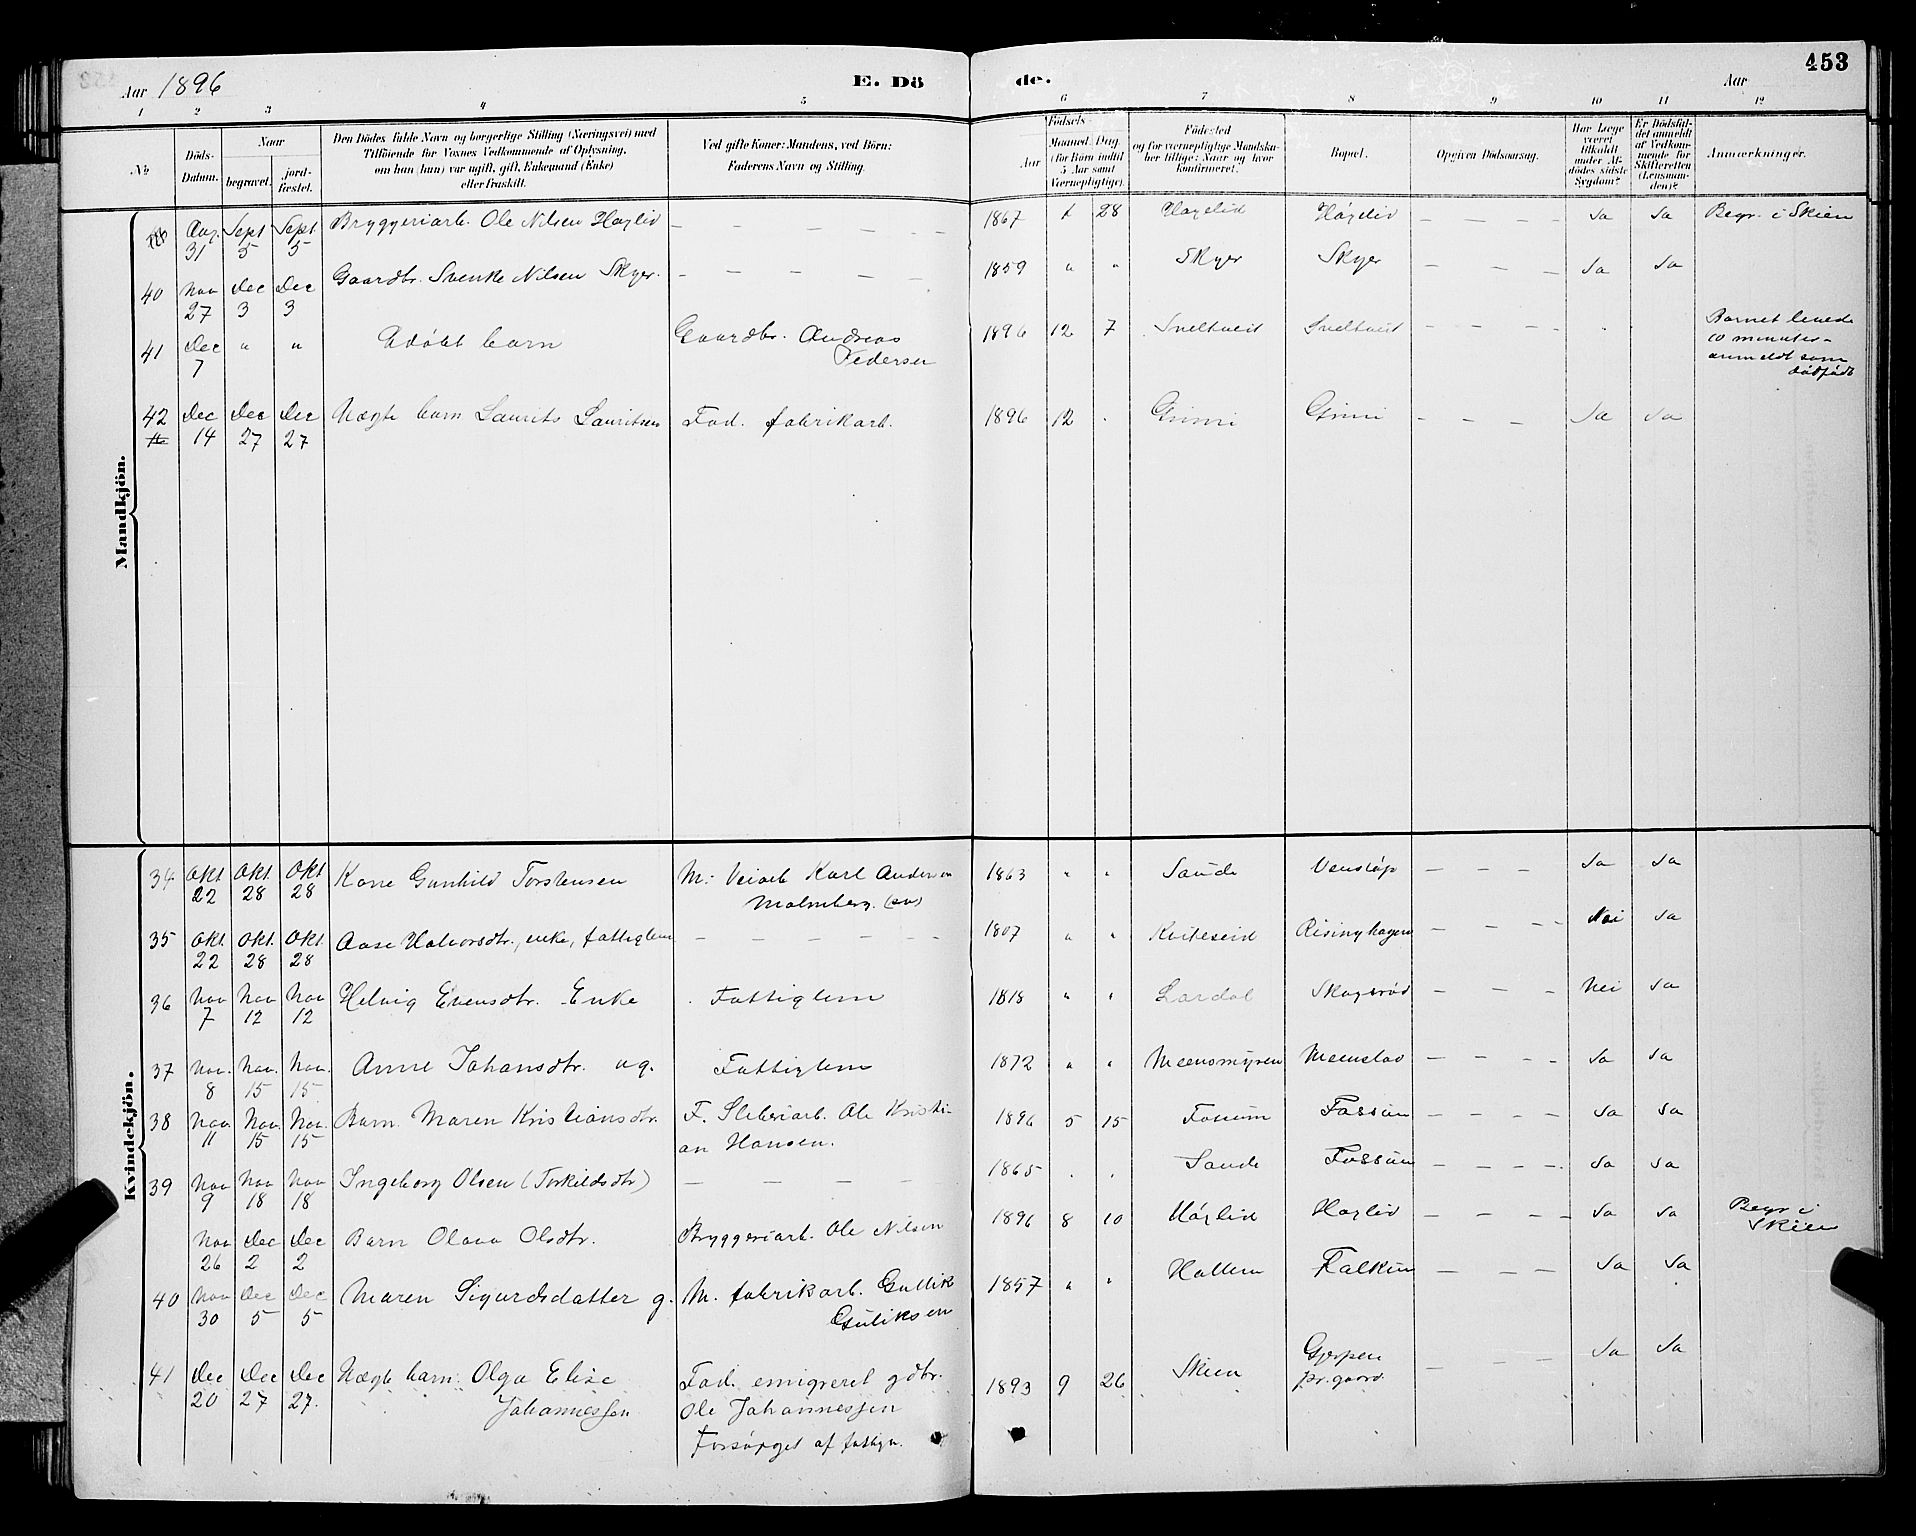 453
Aar 1896
E. Dö
de.
Aar
1 2 3 4 5 6 7 8 9 10 11 12
No
Döds-Datum.
Naar
begravet.
jord-fæstet.
Den Dödes fulde Navn og borgerlige Stilling (Næringsvei) med
Tilföiende for Voxnes Vedkommende af Oplysning,
om han (hun) var ugift, gift, Enkemand (Enke)
eller fraskilt.
Ved gifte Koner: Mandens, ved Börn:
Faderens Navn og Stilling.
Födsels
Aar
Maaned. Dag.
(for Börn indtil
5 Aar samt
Værnepligtige).
Födested
og for værnepligtige Mandska-
ber tillige: Naar og hvor
konfirmeret.
Bopæl.
Opgiven Dödsaarsag.
Har Læge
været
tilkaldt
under Af-
dödes sidste
Sygdom?
Er Dödsfal-
det anmeldt
af Vedkom-
mende for
Skifteretten
(Lensman-
den)?
Anmærkninger.
Mandkjön.
Aug. 31 Sept 5 Sept 5 Bryggeriarb. Ole Nilsen Høglid — — — — — 1867 28 Høgelid Høgelid — — — — Ja Ja Begr. i Skien
40 Nov 27 Dec 3 Dec 3 Gaardbr. Svenke Nilsen Skyer. — — — — — 1859 " " Skyer Skyer — — — Ja Ja
41 Dec 7 " " Udöbt barn Gaardbr. Andreas Pedersen 1896 12 7 Sneltveit Sneltveit — — — — Barnet levede
10 minuter -
anmeldt som
dödfödt
42 Dec 14 Dec 27 Dec 27 Uægte barn Laurits Lauritsen Fad. fabrikarb. 1896 12 . Grini Grini — — — Ja Ja
Kvindekjön.
34 Okt 22 Okt. 28 Okt 28 Kone Gunhild Torstensen M: Veiarb Karl Andersen
Malmberg. (sv) 1863 " " Saude Venstöp — — — Ja Ja
35 Okt. 22 Okt. 28 Okt. 28 Aase Halvorsdtr., enke, fattiglem — — — — — 1807 " " Kviteseid Risinghagen — — — Nei Ja
36 Nov 7 Nov 12 Nov 12 Helvig Evensdtr. Enke Fattiglem 1818 " " Lardal Skogsröd — — — Nei Ja
37 Nov. 8 Nov. 15 Nov. 15 Anne Johansdtr. ug. Fattiglem 1872 " " Meensmyren Meenstad — — — — Ja Ja
38 Nov 11 Nov. 15 Nov. 15 Barn Maren Kristiansdtr. F. Sliberiarb. Ole Kristi-
an Hansen. 1896 5 15 Fossum Fossum — — — — Ja Ja
39 Nov 9 Nov 18 Nov 18 Ingeborg Olsen (Torkildsdtr) — — — — 1865 . . Saude Fossum — — — — Ja Ja
Nov 26 Dec 2 Dec 2 Barn Olava Olsdtr. Bryggeriarb. Ole Nilsen 1896 8 10 Höglid Høglid — — — — Ja Ja Begr i
Skien
40 Nov 30 Dec 5 Dec 5 Maren Sigurdsdatter g. M. fabrikarb. Gullik
Gulliksen 1857 " " Hollen Falkum — — — Ja Ja
41 Dec 20 Dec 27 Dec 27. Uægte barn: Olga Elise
Johannessen Fad. emigreret gdbr.
Ole Johannessen
Forsörget af fattigv. 1893 9 26 Skien Gjerpen
pr.gaard — — — Ja Ja